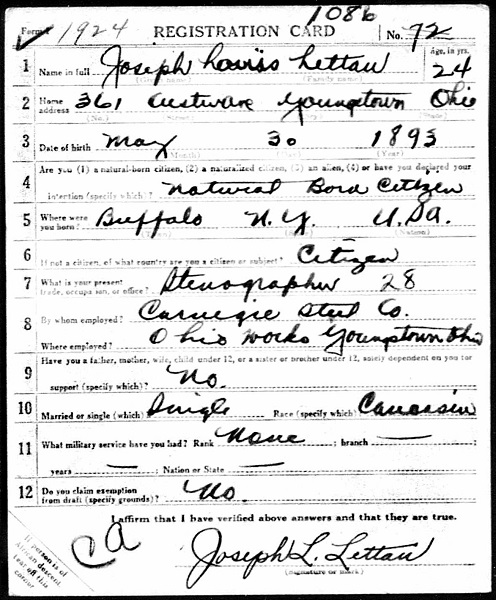 108b
Form 1 1924 REGISTRATION CARD No. 72
Age, in yrs.
1 Name in full Joseph Louiss Lettau 24
(Given name) (Family name)
2 Home address 361 Youngstown Ohio
(No.) (Street) (City) (State)
3 Date of birth May 30 1893
(Month) (Day) (Year)
Are you (1) a natural-born citizen, (2) a naturalized citizen, (3) an alien, (4) or have you declared your
4 intention (specify which)? Natural Born Citizen
5 Where were you born? Buffalo N.Y. U.S.A.
(Town) (State) (Nation)
6 If not a citizen, of what country are you a citizen or subject? Citizen
7 What is your present trade, occupation, or office? Stenographer 28
8 By whom employed? Carnegie Steel Co.
Where employed? Ohio Works Youngstown Ohio
9 Have you a father, mother, wife, child under 12, or a sister or brother under 12, solely dependent on you for
support (specify which)? No.
10 Married or single (which)? Single Race (specify which)? Caucasian
11 What military service have you had? Rank None ; branch —
years — ; Nation or State —
12 Do you claim exemption from draft (specify grounds)? No.
I affirm that I have verified above answers and that they are true.
Joseph L. Lettau
(Signature or mark)
If person is of
African descent
tear off this
corner